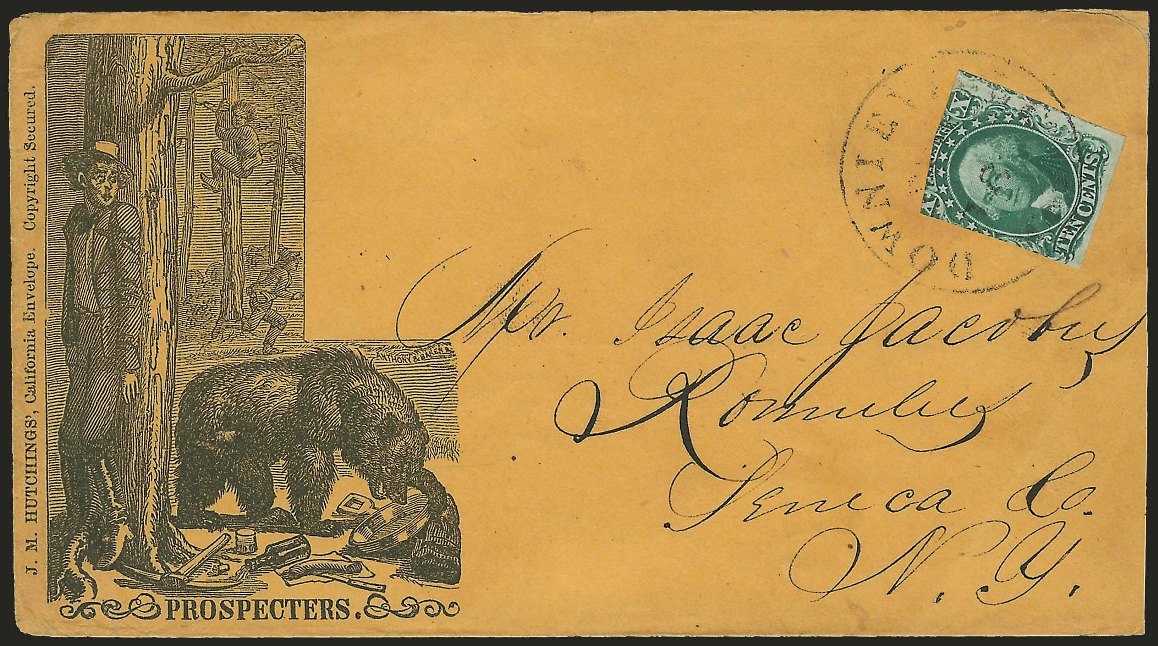 J. M. HUTCHINGS', California Envelope. Copyright Secured.
ANTHONY & BAKER
PROSPECTERS.
DOWNIEV
X
TEN CENTS
X
Mr. Isaac Jacobus
Romulus
Seneca Co.
N. Y.